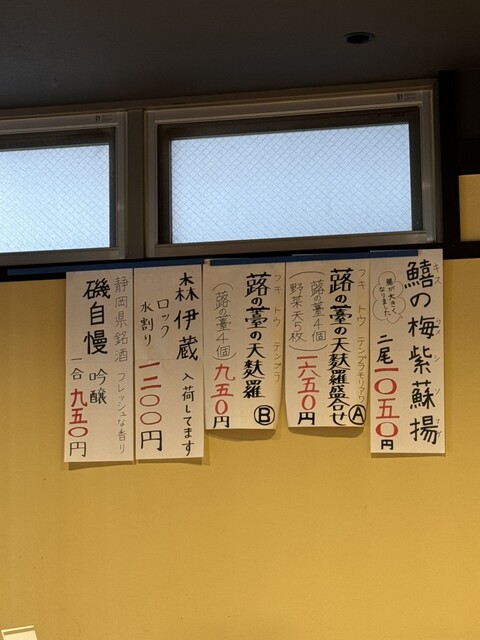 鱚の梅紫蘇揚
キス ウメ シソ アゲ
腹が大きくなりました
二尾一〇五〇円
フキ トウ テンプラモリアワ
蕗の薹の天麩羅盛合せ
Ⓐ
(蕗の薹4個
野菜天5枚)
一六五〇円
フキ トウ テンプラ
蕗の薹の天麩羅
Ⓑ
(蕗の薹4個)
九五〇円
森伊蔵 入荷してます
ロック
水割り
一二〇〇円
静岡県銘酒 フレッシュな香り
磯自慢 吟醸
一合 九五〇円